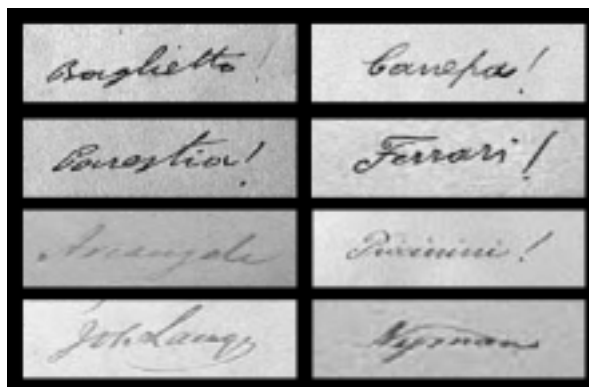 Baglietto!
Canepa!
Carestia!
Ferrari!
Arcangeli
Piccinini!
Joh. Lange
Nyman